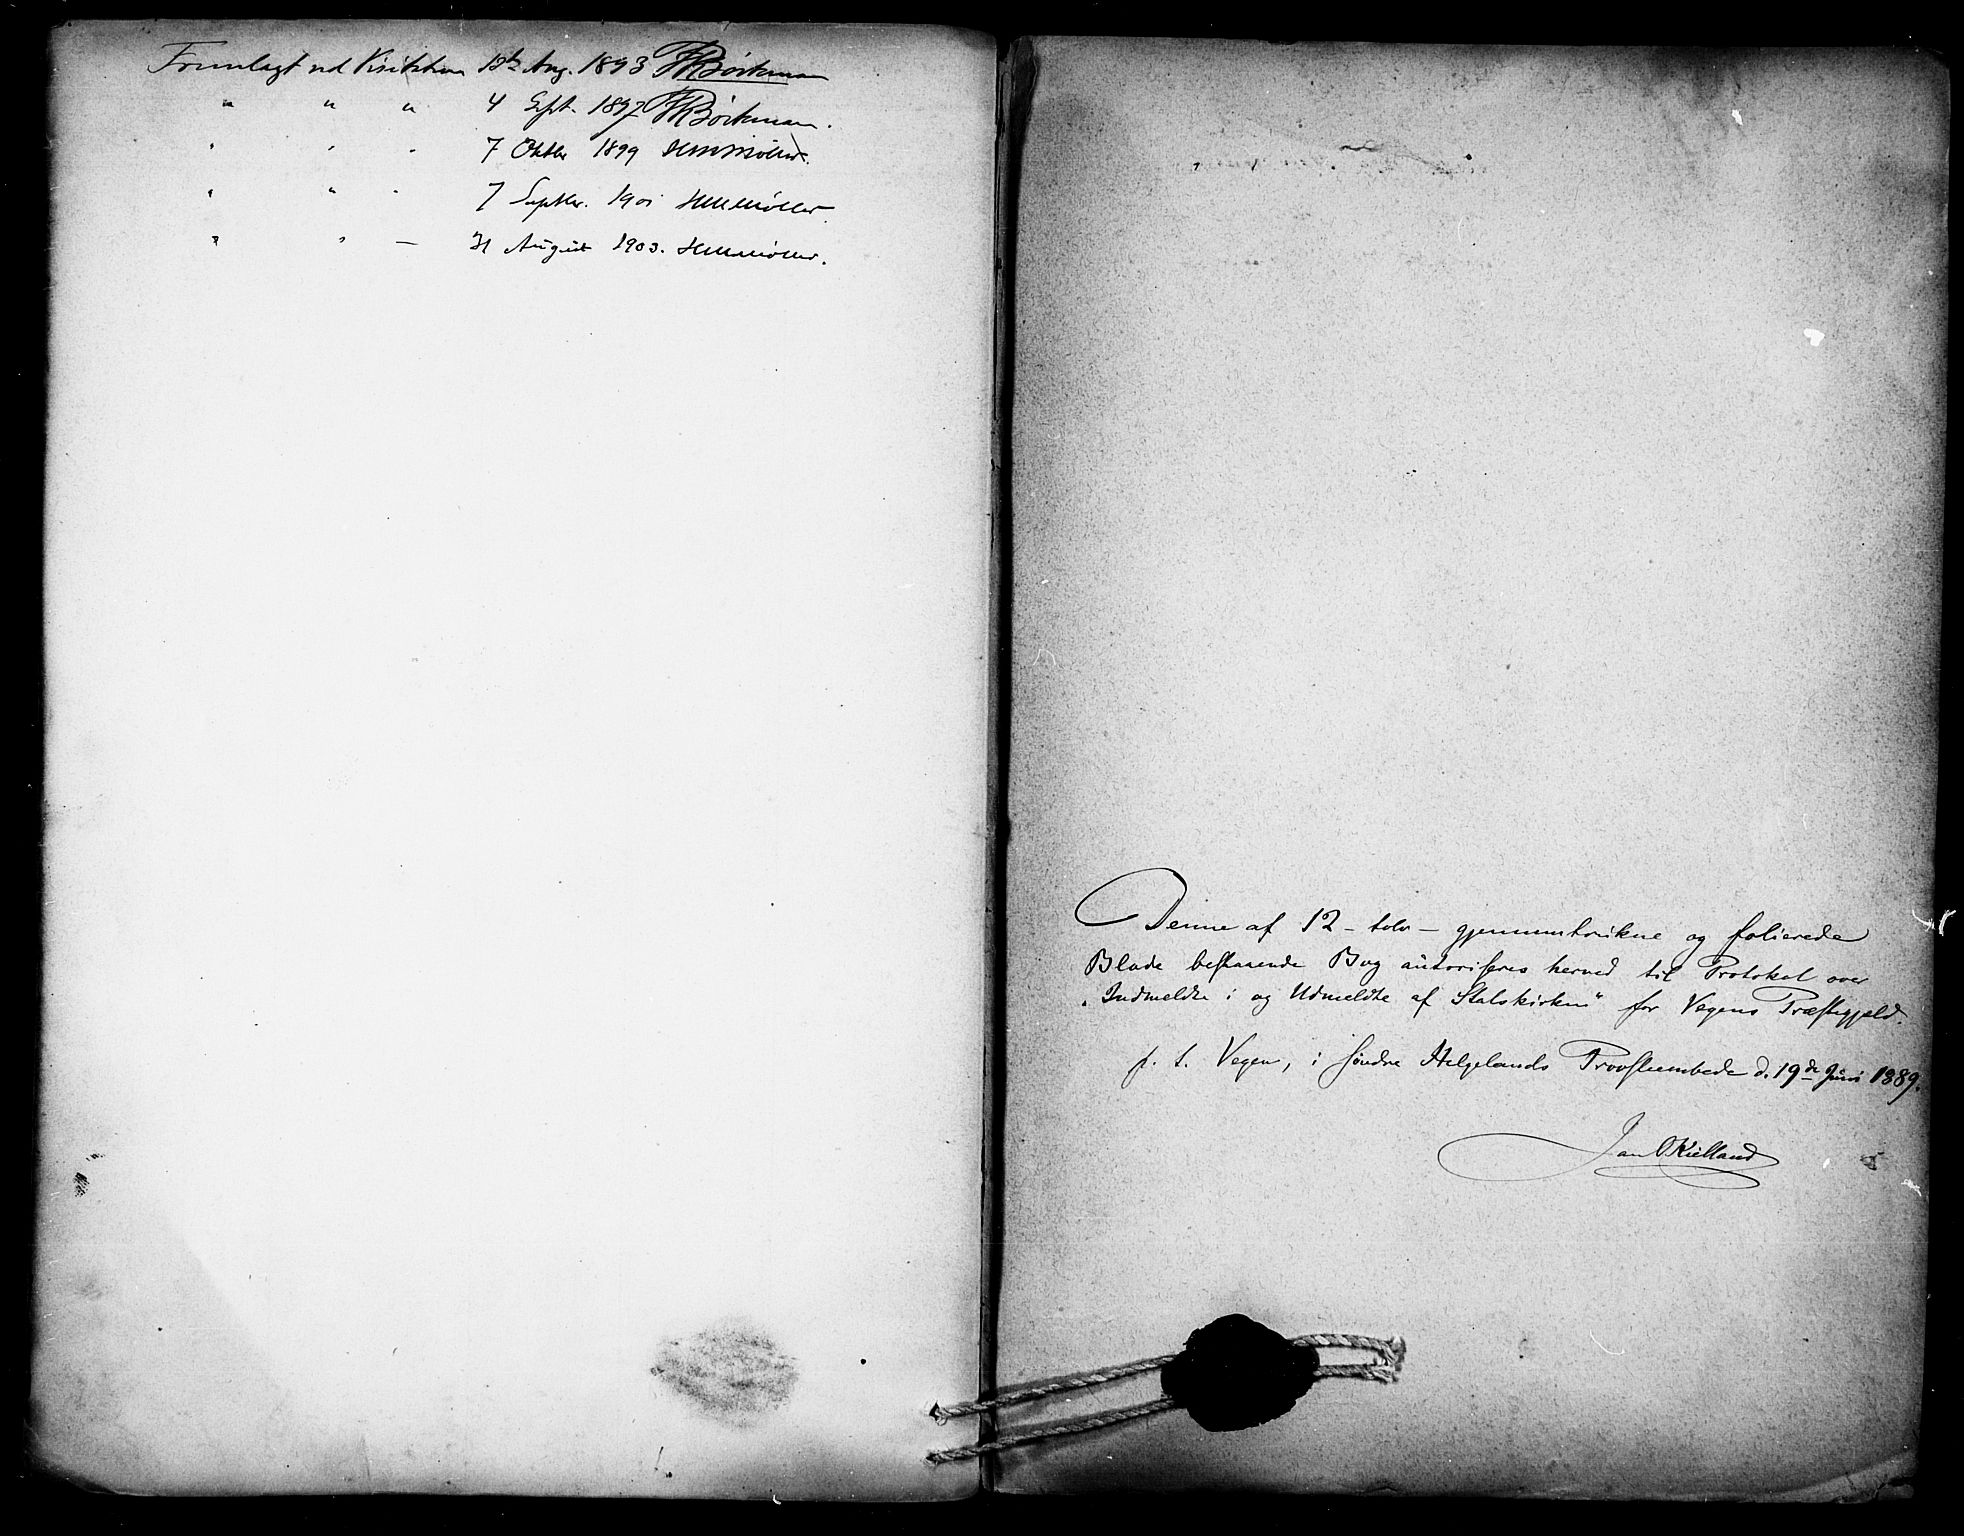 Fremlagt ved Visitation Aug. 1893 Bøckman
" " " 4 Sept. 1897 Bøckman.
" " " 7 Oktbr 1899 HMMøller.
" " " 7 Septbr. 1901 HMMøller.
" " — 31 August 1903. HMMøller.
Denne af 12 - tolv - gjennemtrukne og folierede
Blade bestaaende Bog autoriseres herved til Protokol over
„Indmeldte i og Udmeldte af Statskirken" for Vegens Præstegjeld.
p. t. Vegen, i søndre Helgelands Provstiembede d. 19de Juni 1889.
Jan OKielland